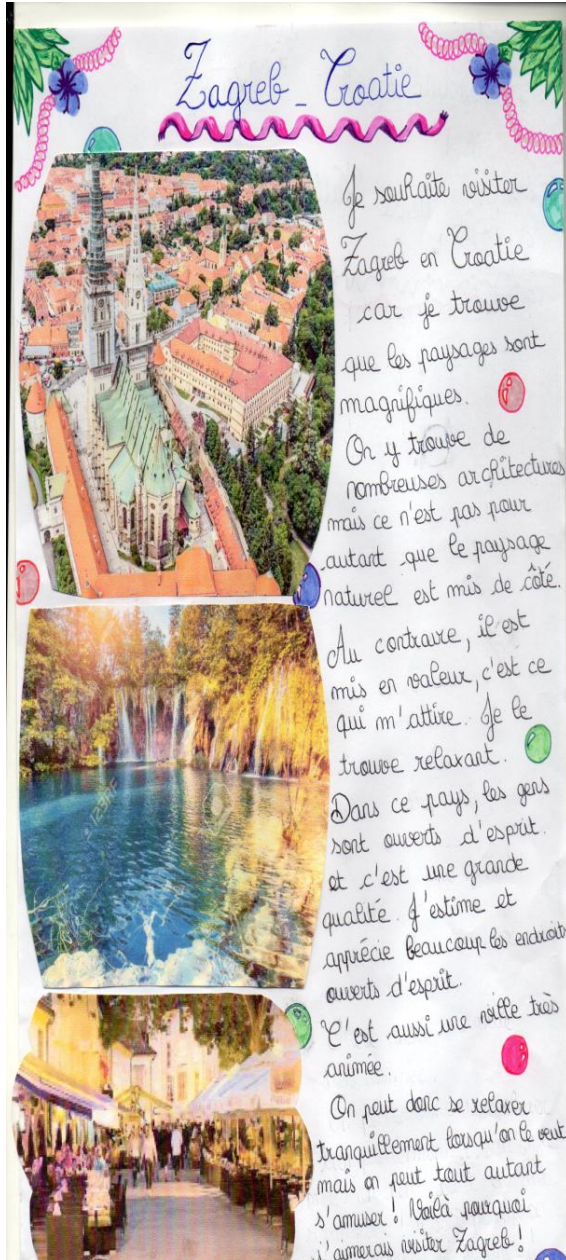 Zagreb - Croatie
Je souhaite visiter
Zagreb en Croatie
car je trouve
que les paysages sont
magnifiques.
On y trouve de
nombreuses architectures
mais ce n'est pas pour
autant que le paysage
naturel est mis de côté.
Au contraire, il est
mis en valeur, c'est ce
qui m'attire. Je le
trouve relaxant.
Dans ce pays, les gens
sont ouverts d'esprit
et c'est une grande
qualité. J'estime et
apprécie beaucoup les endroits
ouverts d'esprit.
C'est aussi une ville très
animée.
On peut donc se relaxer
tranquillement lorsqu'on le veut
mais on peut tout autant
s'amuser ! Voilà pourquoi
j'aimerais visiter Zagreb !
123RF